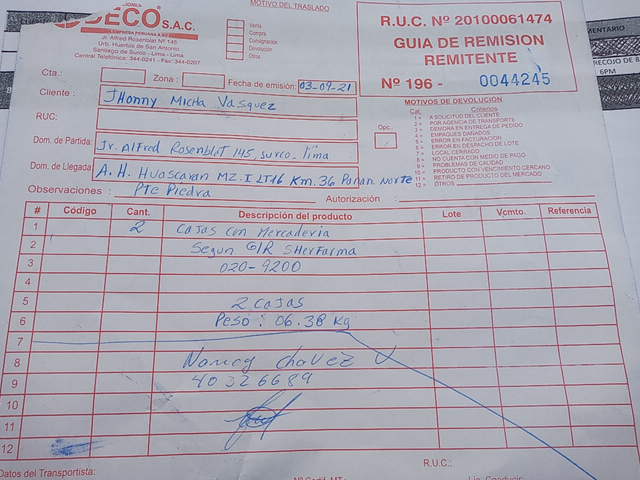 DECO S.A.C.
Jr. Alfred Rosenblat Nº 145
Urb. Huertos de San Antonio
Santiago de Surco - Lima - Lima
Central Telefónica: 344-0241 - Fax: 344-0207
MOTIVO DEL TRASLADO
Venta
Compra
Consignación
Devolución
Otros
R.U.C. Nº 20100061474
GUIA DE REMISION
REMITENTE
Nº 196 - 0044245
MENTARIO
RECOJO DE 8
6PM
Cta.:
Zona :
Fecha de emisión: 03-09-21
Cliente : JHonny Micha Vasquez
RUC:
Dom. de Partida: Jr. Alfred Rosenblat 145, surco. lima
Dom. de Llegada: A. H. Huascaran MZ. I LT 16 Km. 36 Panam. Norte
Pte Piedra
Observaciones :
Autorización :
Opc.
MOTIVOS DE DEVOLUCIÓN
Cat. Criterios
1= A SOLICITUD DEL CLIENTE
2= POR AGENCIA DE TRANSPORTE
3= DEMORA EN ENTREGA DE PEDIDO
4= EMPAQUES DAÑADOS
5= ERROR EN FACTURACIÓN
6= ERROR EN DESPACHO DE LOTE
7= LOCAL CERRADO
8= NO CUENTA CON MEDIO DE PAGO
9= PROBLEMAS DE CALIDAD
10= PRODUCTO CON VENCIMIENTO CERCANO
11= RETIRO DE PRODUCTO DEL MERCADO
12= OTROS
# Código Cant. Descripción del producto Lote Vcmto. Referencia
1 2 cajas con Mercaderia
2 Segun G/R SHerfarma
3 020-9200
4
5 2 cajas
6 Peso : 06.38 Kg
7
8 Nancy chavez V
9 40326689
10
11
12
Datos del Transportista:
R.U.C.: